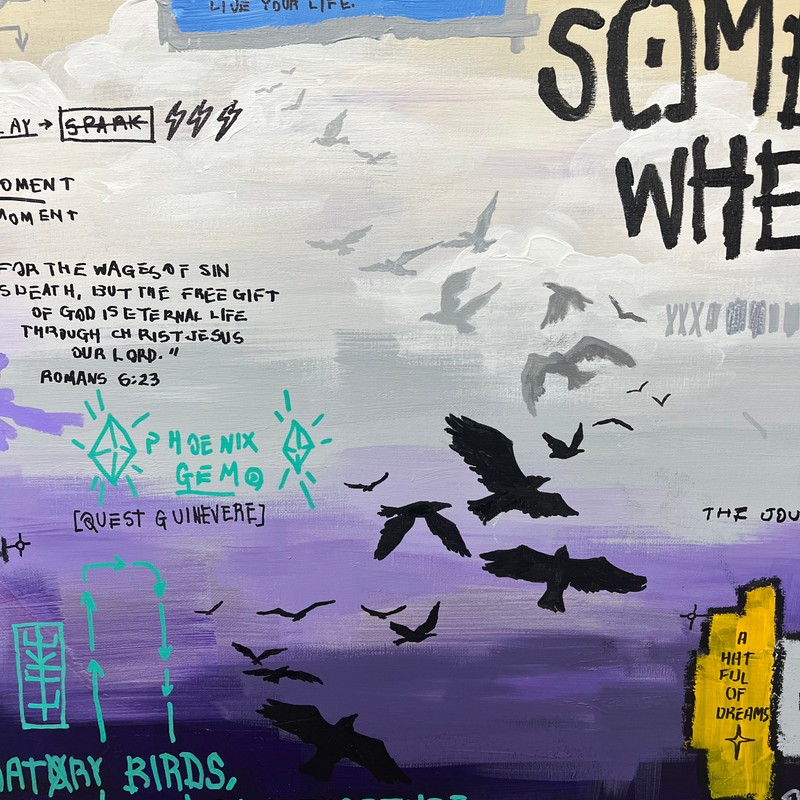 LIVE YOUR LIFE.
SOME
WHE
LAY → SPARK
MOMENT
MOMENT
FOR THE WAGES OF SIN
IS DEATH, BUT THE FREE GIFT
OF GOD IS ETERNAL LIFE
THROUGH CHRIST JESUS
OUR LORD."
ROMANS 6:23
PHOENIX
GEM
[QUEST GUINEVERE]
THE JOU
A
HAT
FUL
OF
DREAMS
ATORY BIRDS,